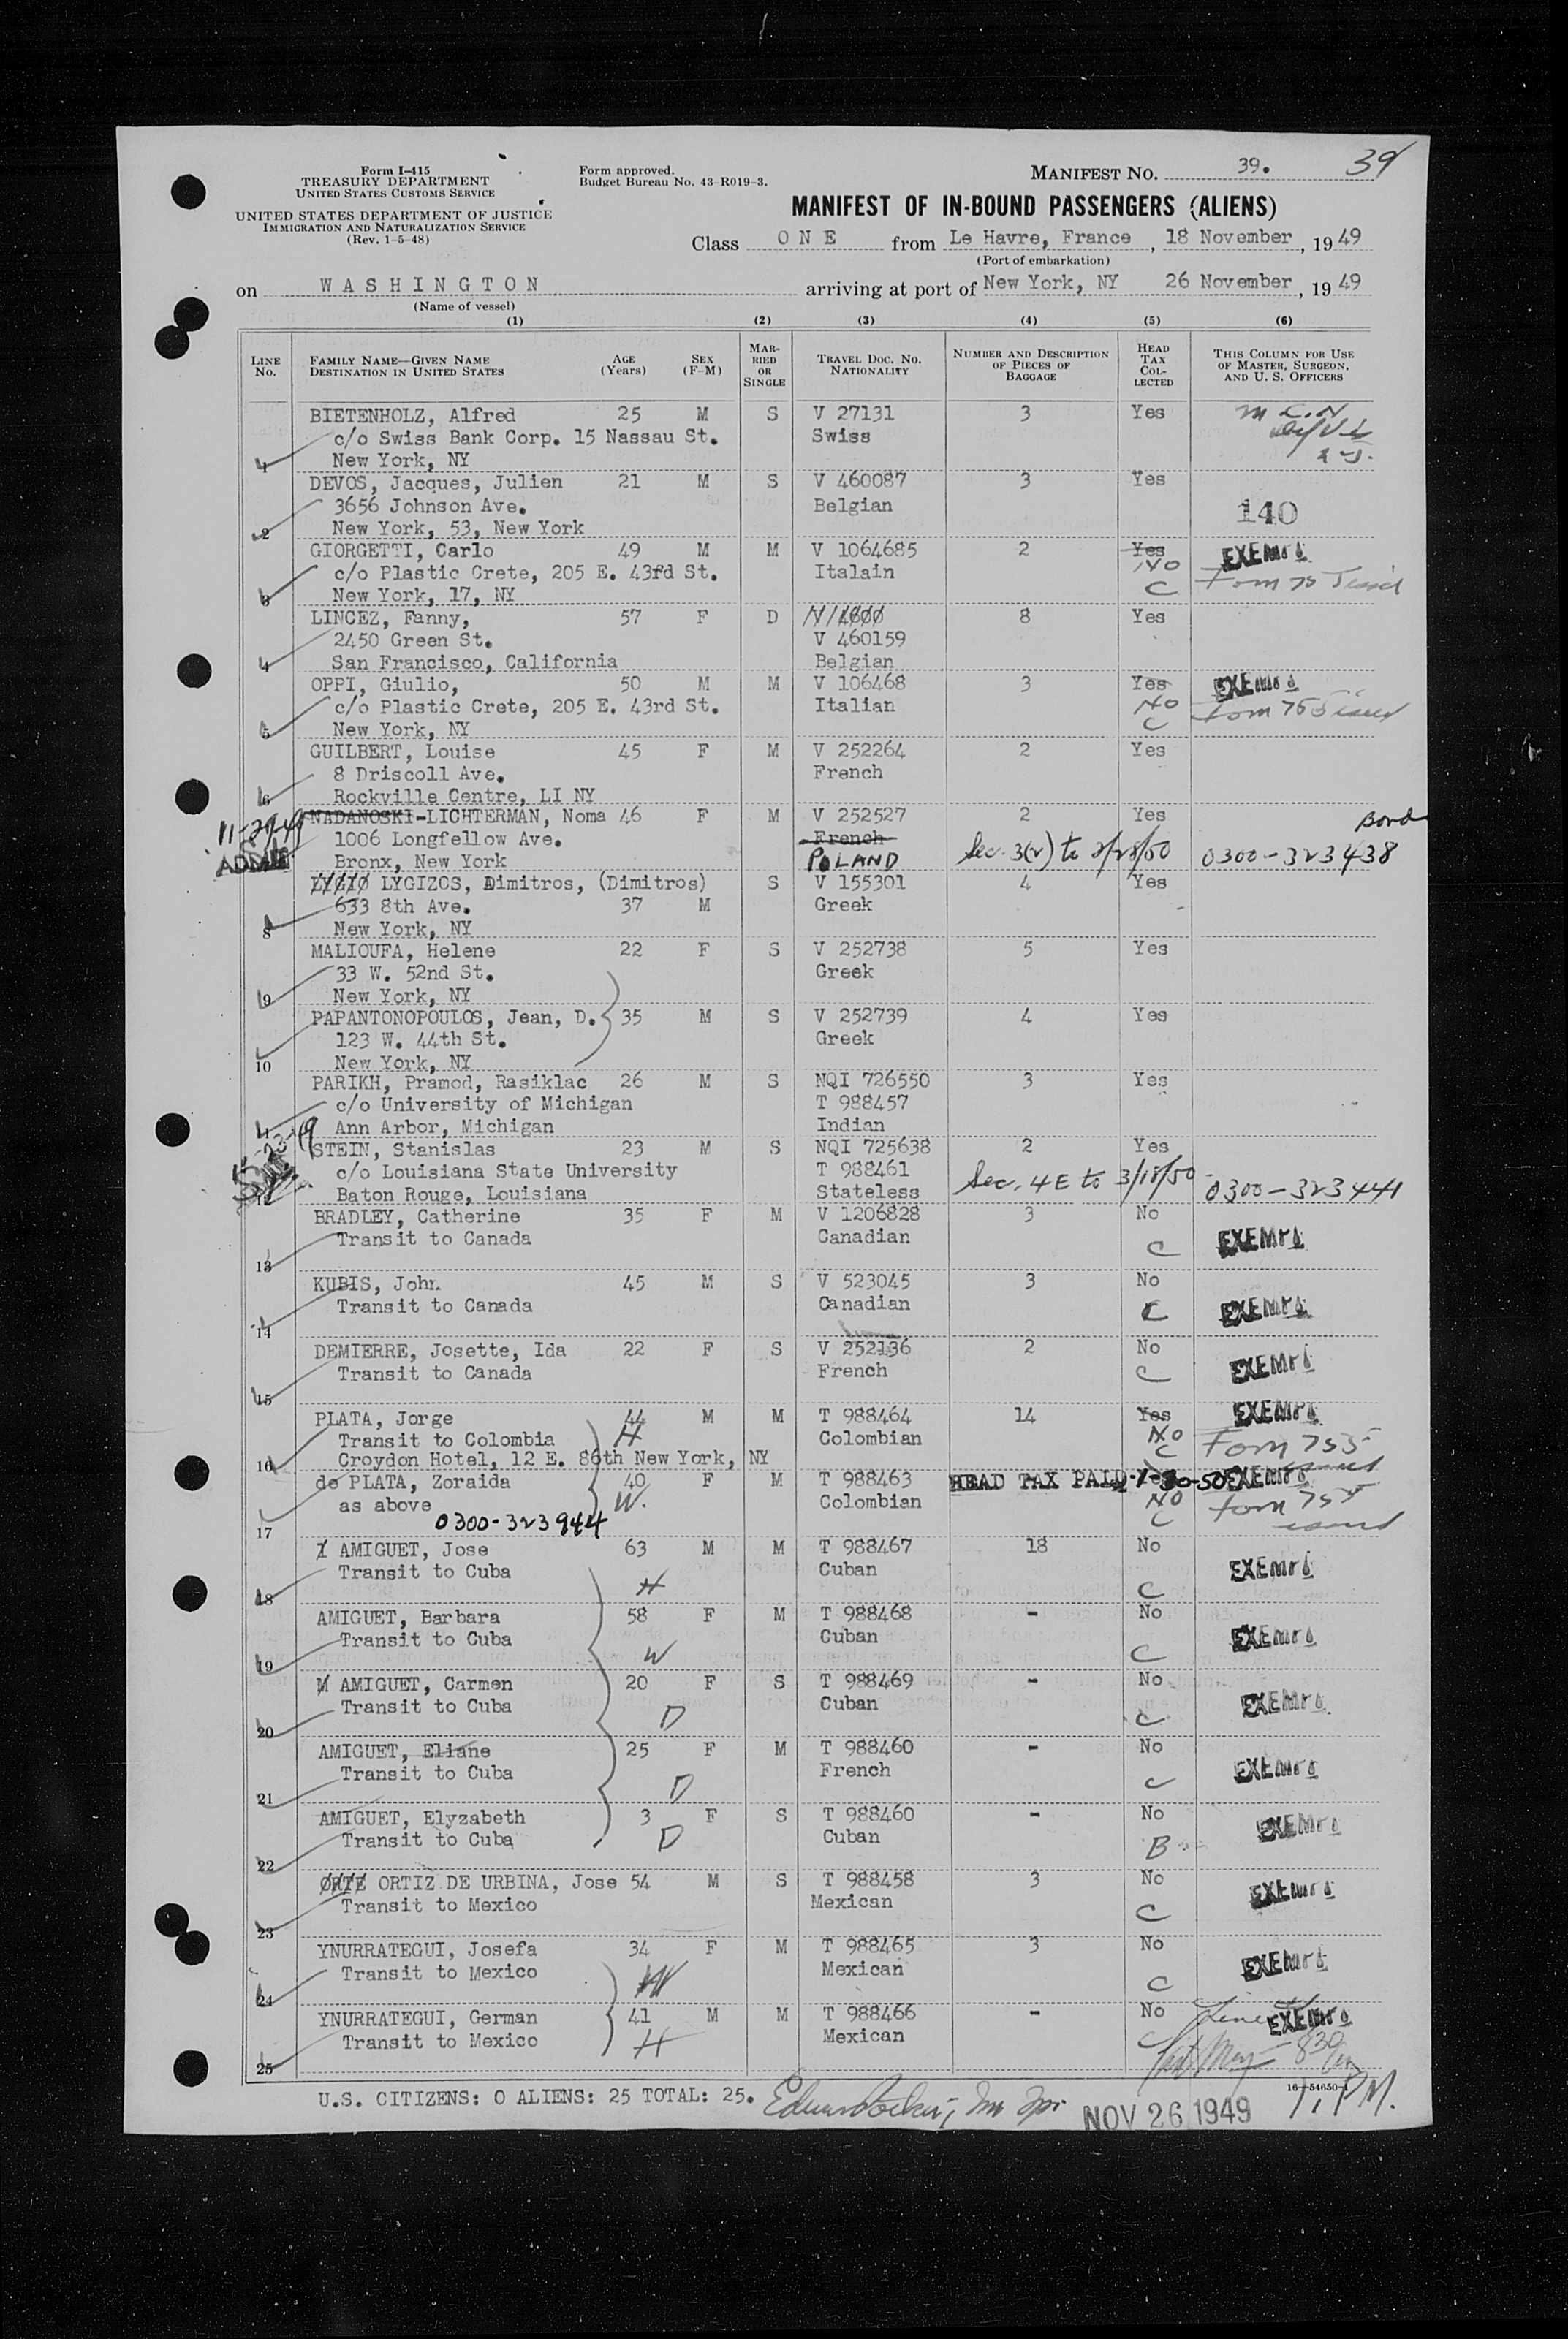 Form I-415
TREASURY DEPARTMENT
UNITED STATES CUSTOMS SERVICE
UNITED STATES DEPARTMENT OF JUSTICE
IMMIGRATION AND NATURALIZATION SERVICE
(Rev. 1-5-48)
Form approved.
Budget Bureau No. 43-R019-3.
MANIFEST NO. 39. 39
MANIFEST OF IN-BOUND PASSENGERS (ALIENS)
Class O N E from Le Havre, France, 18 November, 1949
(Port of embarkation)
on W A S H I N G T O N arriving at port of New York, NY 26 November, 1949
(Name of vessel)
(1) (2) (3) (4) (5) (6)
LINE No. FAMILY NAME—GIVEN NAME DESTINATION IN UNITED STATES AGE (Years) SEX (F-M) MARRIED OR SINGLE TRAVEL DOC. NO. NATIONALITY NUMBER AND DESCRIPTION OF PIECES OF BAGGAGE HEAD TAX COLLECTED THIS COLUMN FOR USE OF MASTER, SURGEON, AND U. S. OFFICERS
BIETENHOLZ, Alfred 25 M S V 27131 3 Yes
c/o Swiss Bank Corp. 15 Nassau St. Swiss
1 New York, NY
DEVOS, Jacques, Julien 21 M S V 460087 3 Yes
3656 Johnson Ave. Belgian 140
2 New York, 53, New York
GIORGETTI, Carlo 49 M M V 1064685 2 Yes NO EXEMPT
c/o Plastic Crete, 205 E. 43rd St. Italain C Form 755 issued
3 New York, 17, NY
LINCEZ, Fanny, 57 F D 8 Yes
2450 Green St. V 460159
4 San Francisco, California Belgian
OPPI, Giulio, 50 M M V 106468 3 Yes NO EXEMPT
c/o Plastic Crete, 205 E. 43rd St. Italian C Form 755 issued
5 New York, NY
GUILBERT, Louise 45 F M V 252264 2 Yes
8 Driscoll Ave. French
6 Rockville Centre, LI NY
NADANOSKI-LICHTERMAN, Noma 46 F M V 252527 2 Yes Bond
1006 Longfellow Ave. French
ADMIT Bronx, New York POLAND Sec. 3(2) to 2/28/50 0300-323438
LYGIZOS, Dimitros, (Dimitros) S V 155301 4 Yes
633 8th Ave. 37 M Greek
8 New York, NY
MALIOUFA, Helene 22 F S V 252738 5 Yes
33 W. 52nd St. Greek
9 New York, NY
PAPANTONOPOULOS, Jean, D. 35 M S V 252739 4 Yes
123 W. 44th St. Greek
10 New York, NY
PARIKH, Pramod, Rasiklac 26 M S NQI 726550 3 Yes
c/o University of Michigan T 988457
11 Ann Arbor, Michigan Indian
STEIN, Stanislas 23 M S NQI 725638 2 Yes
c/o Louisiana State University T 988461
12 Baton Rouge, Louisiana Stateless Sec. 4E to 3/18/50 0300-323441
BRADLEY, Catherine 35 F M V 1206828 3 No
Transit to Canada Canadian C EXEMPT
13
KUBIS, John 45 M S V 523045 3 No
Transit to Canada Canadian C EXEMPT
14
DEMIERRE, Josette, Ida 22 F S V 252136 2 No
Transit to Canada French C EXEMPT
15
PLATA, Jorge 44 M M T 988464 14 Yes EXEMPT
Transit to Colombia H Colombian NO C Form 755 issued
16 Croydon Hotel, 12 E. 86th New York, NY
de PLATA, Zoraida 40 F M T 988463 HEAD TAX PAID EXEMPT
as above W. Colombian NO C Form 755 issued
17 0300-323944
AMIGUET, Jose 63 M M T 988467 18 No
Transit to Cuba H Cuban C EXEMPT
18
AMIGUET, Barbara 58 F M T 988468 - No
Transit to Cuba W Cuban C EXEMPT
19
AMIGUET, Carmen 20 F S T 988469 - No
Transit to Cuba D Cuban C EXEMPT
20
AMIGUET, Eliane 25 F M T 988460 - No
Transit to Cuba D French C EXEMPT
21
AMIGUET, Elyzabeth 3 F S T 988460 - No
Transit to Cuba D Cuban B EXEMPT
22
ORTE ORTIZ DE URBINA, Jose 54 M S T 988458 3 No
Transit to Mexico Mexican C EXEMPT
23
YNURRATEGUI, Josefa 34 F M T 988465 3 No
Transit to Mexico W Mexican C EXEMPT
24
YNURRATEGUI, German 41 M M T 988466 - No EXEMPT
Transit to Mexico H Mexican C
25
U.S. CITIZENS: 0 ALIENS: 25 TOTAL: 25. NOV 26 1949
16-54650-1